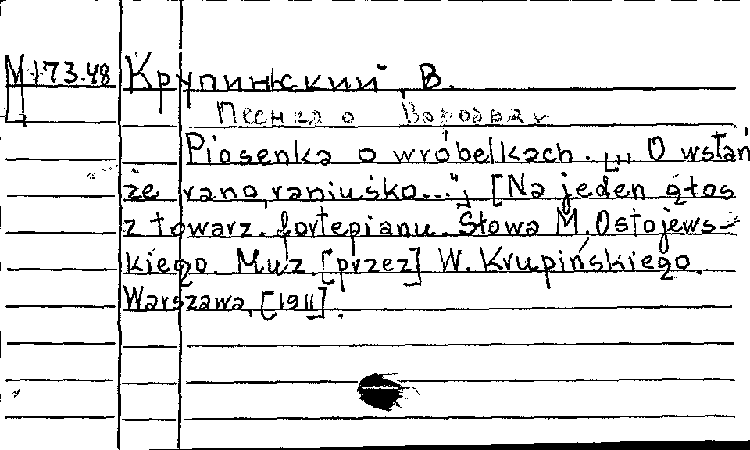 М 173.48 Крупинский, В.
Песнка о Воробьях
Piosenka o wróbelkach. [„O wstań
że rano, raniuśko..."] [Na jeden głos
z towarz. fortepianu. Słowa M. Ostojews-
kiego. Muz. [przez] W. Krupińskiego.
Warszawa, [1911].